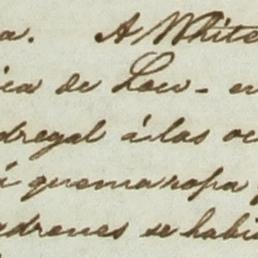 a. A White
ica de Lou- en
dregal á las oc
á quema ropa
adrones se habi